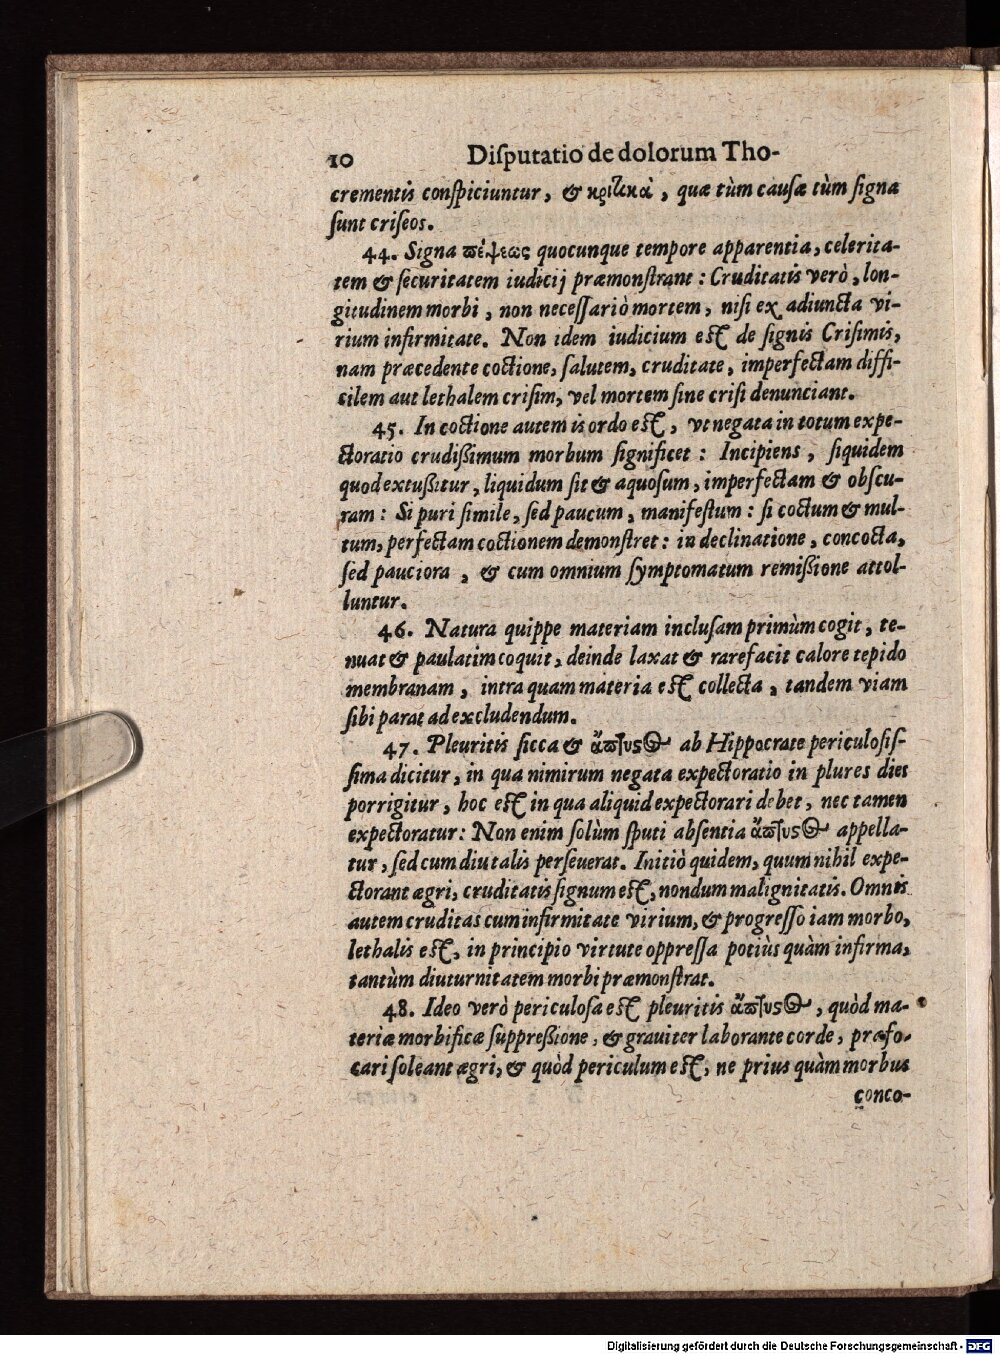 10 Diſputatio de dolorum Tho-
crementis conſpiciuntur, & κριτικὰ, quæ tùm cauſæ tùm ſigna
ſunt criſeos.
44. Signa ϖέψεως quocunque tempore apparentia, celerita-
tem & ſecuritatem iudicij præmonſtrant: Cruditatis verò, lon-
gitudinem morbi, non neceſſariò mortem, niſi ex adiuncta vi-
rium infirmitate. Non idem iudicium eſt de ſignis Criſimis,
nam præcedente coctione, ſalutem, cruditate, imperfectam diffi-
cilem aut lethalem criſim, vel mortem ſine criſi denunciant.
45. In coctione autem is ordo eſt, vt negata in totum expe-
ctoratio crudißimum morbum ſignificet: Incipiens, ſiquidem
quod extußitur, liquidum ſit & aquoſum, imperfectam & obſcu-
ram: Si puri ſimile, ſed paucum, manifeſtum: ſi coctum & mul-
tum, perfectam coctionem demonſtret: in declinatione, concocta,
ſed pauciora, & cum omnium ſymptomatum remißione attol-
luntur.
46. Natura quippe materiam incluſam primùm cogit, te-
nuat & paulatim coquit, deinde laxat & rarefacit calore tepido
membranam, intra quam materia eſt collecta, tandem viam
ſibi parat ad excludendum.
47. Pleuritis ſicca & ἄϖτυστος ab Hippocrate periculoſiſ-
ſima dicitur, in qua nimirum negata expectoratio in plures dies
porrigitur, hoc eſt in qua aliquid expectorari debet, nec tamen
expectoratur: Non enim ſolùm ſputi abſentia ἄϖτυστος appella-
tur, ſed cum diu talis perſeuerat. Initiò quidem, quum nihil expe-
ctorant ægri, cruditatis ſignum eſt, nondum malignitatis. Omnis
autem cruditas cum infirmitate virium, & progreſſo iam morbo,
lethalis eſt, in principio virtute oppreſſa potiùs quàm infirma,
tantùm diuturnitatem morbi præmonſtrat.
48. Ideo verò periculoſa eſt pleuritis ἄϖτυστος, quòd ma-
teriæ morbificæ ſuppreßione, & grauiter laborante corde, præfo-
cari ſoleant ægri, & quòd periculum eſt, ne prius quàm morbus
conco-
Digitalisierung gefördert durch die Deutsche Forschungsgemeinschaft - DFG